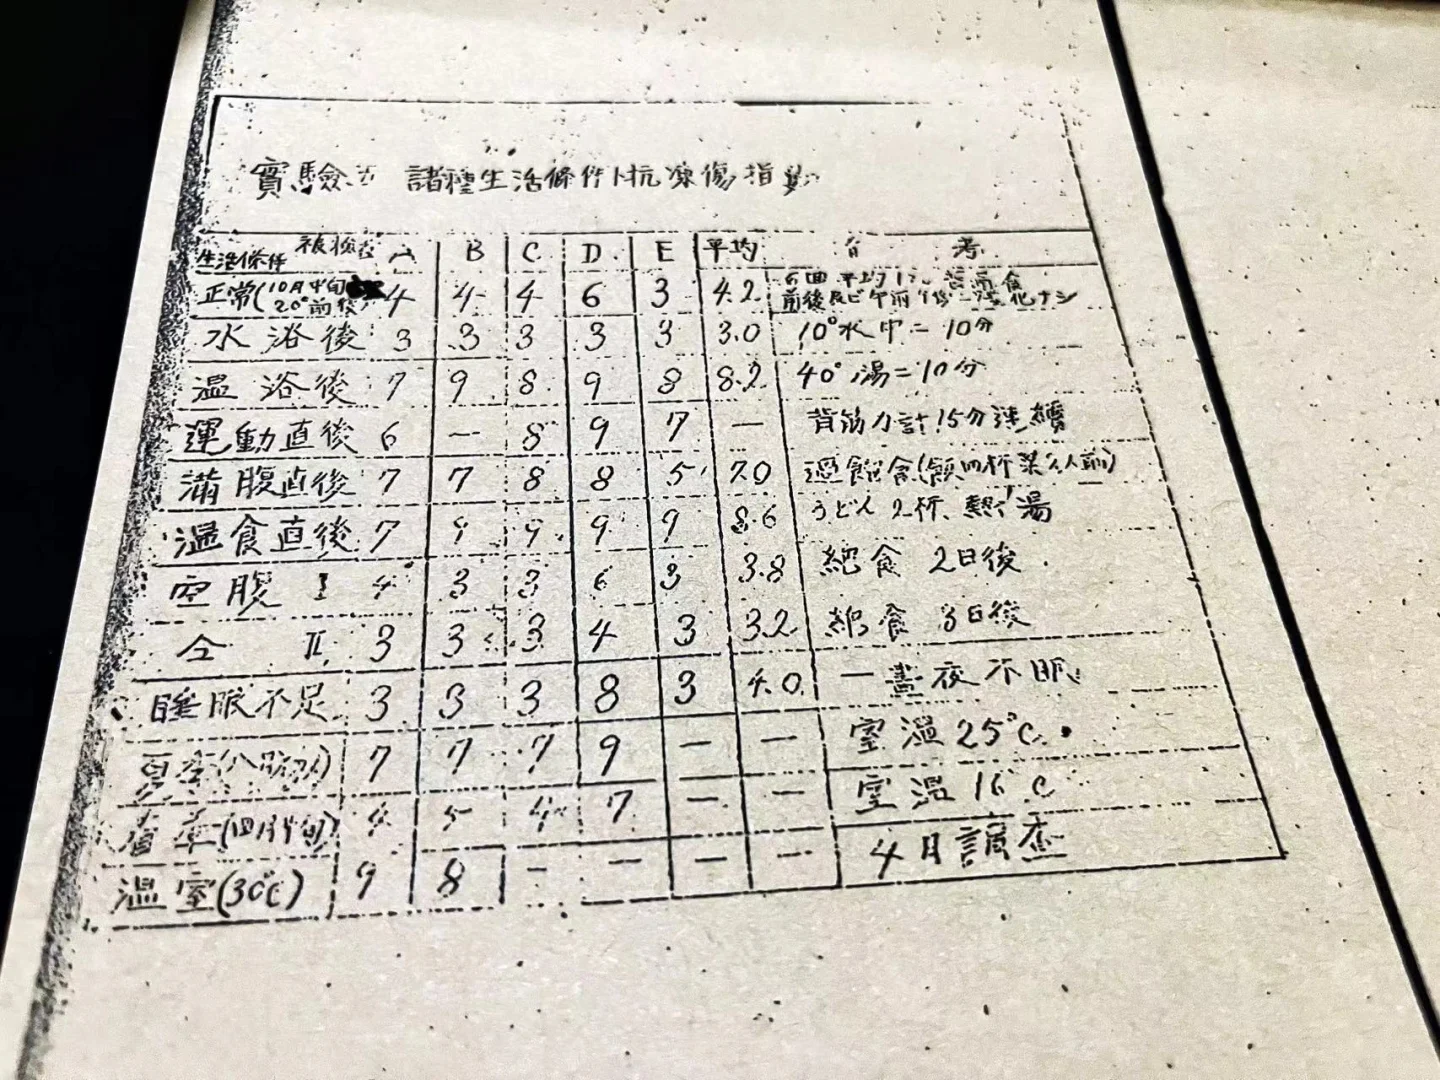 實驗五 諸種生活條件ト抗凍傷指數
生活條件 被檢者 A B C D E 平均 備考
正常(10月中旬 20°前後) 4 4 4 6 3 4.2 6回平均 前後及ビ午前午後ニ変化ナシ
水浴後 3 3 3 3 3 3.0 10°水中ニ10分
温浴後 7 9 8 9 8 8.2 40°湯ニ10分
運動直後 6 — 8 9 7 — 背筋力計15分連續
満腹直後 7 7 8 8 5 7.0 過飽食
温食直後 7 9 9 9 9 8.6 うどん2杯、熱イ湯
空腹 I 4 3 3 6 3 3.8 絶食 2日後
仝 II 3 3 3 4 3 3.2 絶食 3日後
睡眠不足 3 3 3 8 3 4.0 一晝夜不眠
夏季 7 7 7 9 — — 室温25°C
春季(四月中旬) 4 5 4 7 — — 室温16°C
温室(30°C) 9 8 — — — — 4月調査